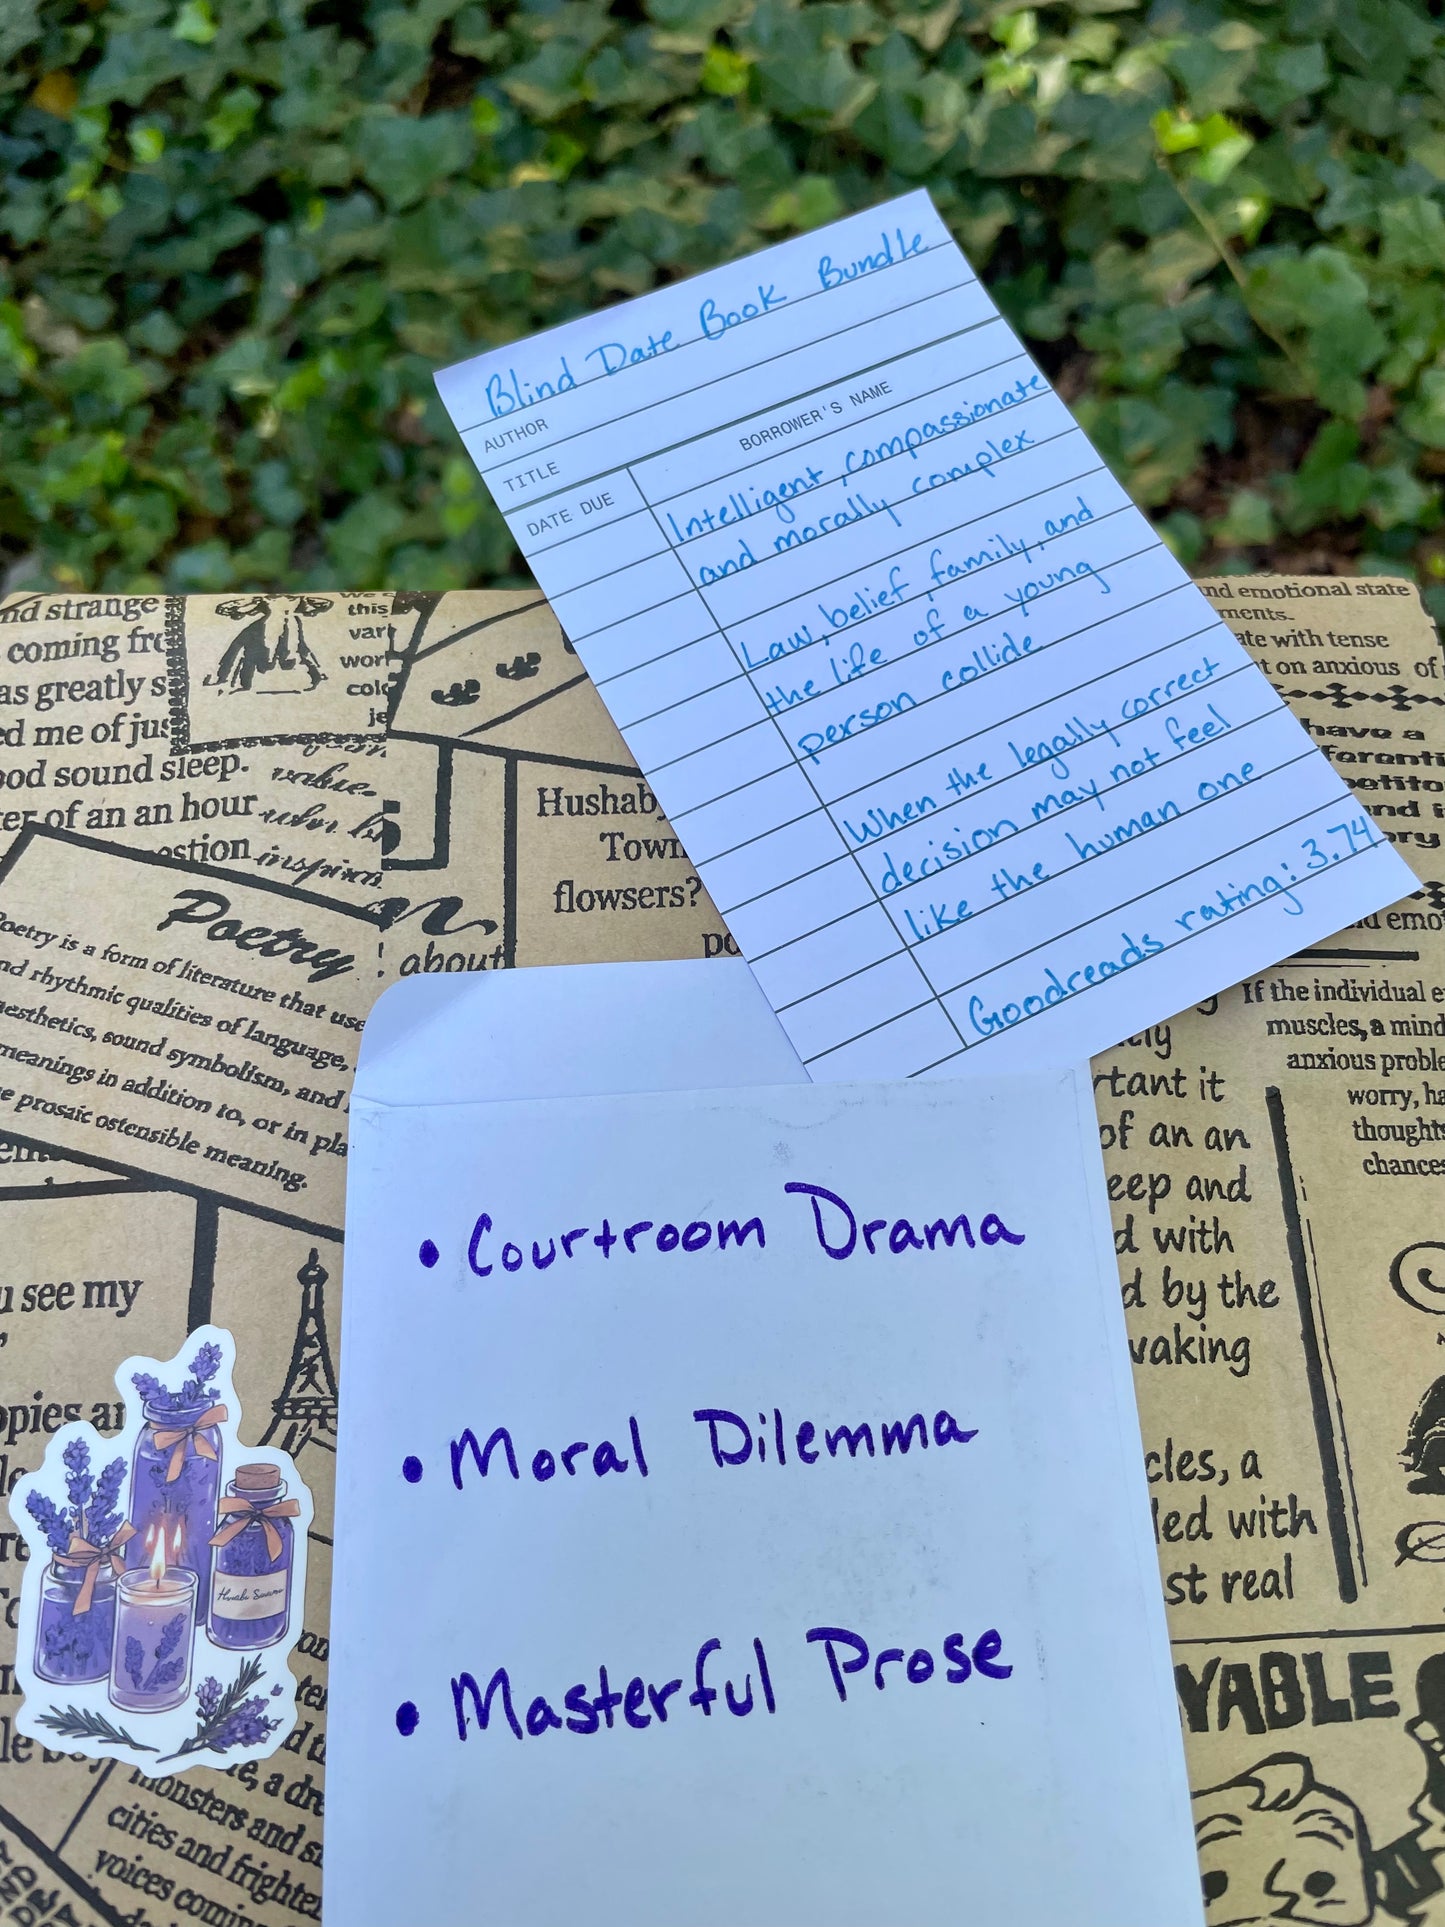 Blind Date Book Bundle
AUTHOR
TITLE
DATE DUE
BORROWER'S NAME
Intelligent, compassionate
and morally complex
Law, belief, family, and
the life of a young
person collide
When the legally correct
decision may not feel
like the human one
Goodreads rating: 3.74
• Courtroom Drama
• Moral Dilemma
• Masterful Prose
nd strange
coming fro
as greatly s
ed me of jus
ood sound sleep.
ter of an an hour
estion
value.
inspiring
this
vari
wor
colo
je
Poetry
! about
Poetry is a form of literature that use
nd rhythmic qualities of language,
aesthetics, sound symbolism, and
meanings in addition to, or in pla
e prosaic ostensible meaning.
Hushaby
Town
flowsers?
po
nd emotional state
ments.
ate with tense
t on anxious of
have a
ferenti
petito
and i
ory
nd emo
If the individual e
muscles, a mind
anxious proble
worry, ha
thoughts
chances
rtant it
of an an
eep and
d with
d by the
waking
cles, a
led with
st real
u see my
opies ar
e, a dre
monsters and s
cities and frighten
voices coming
YABLE